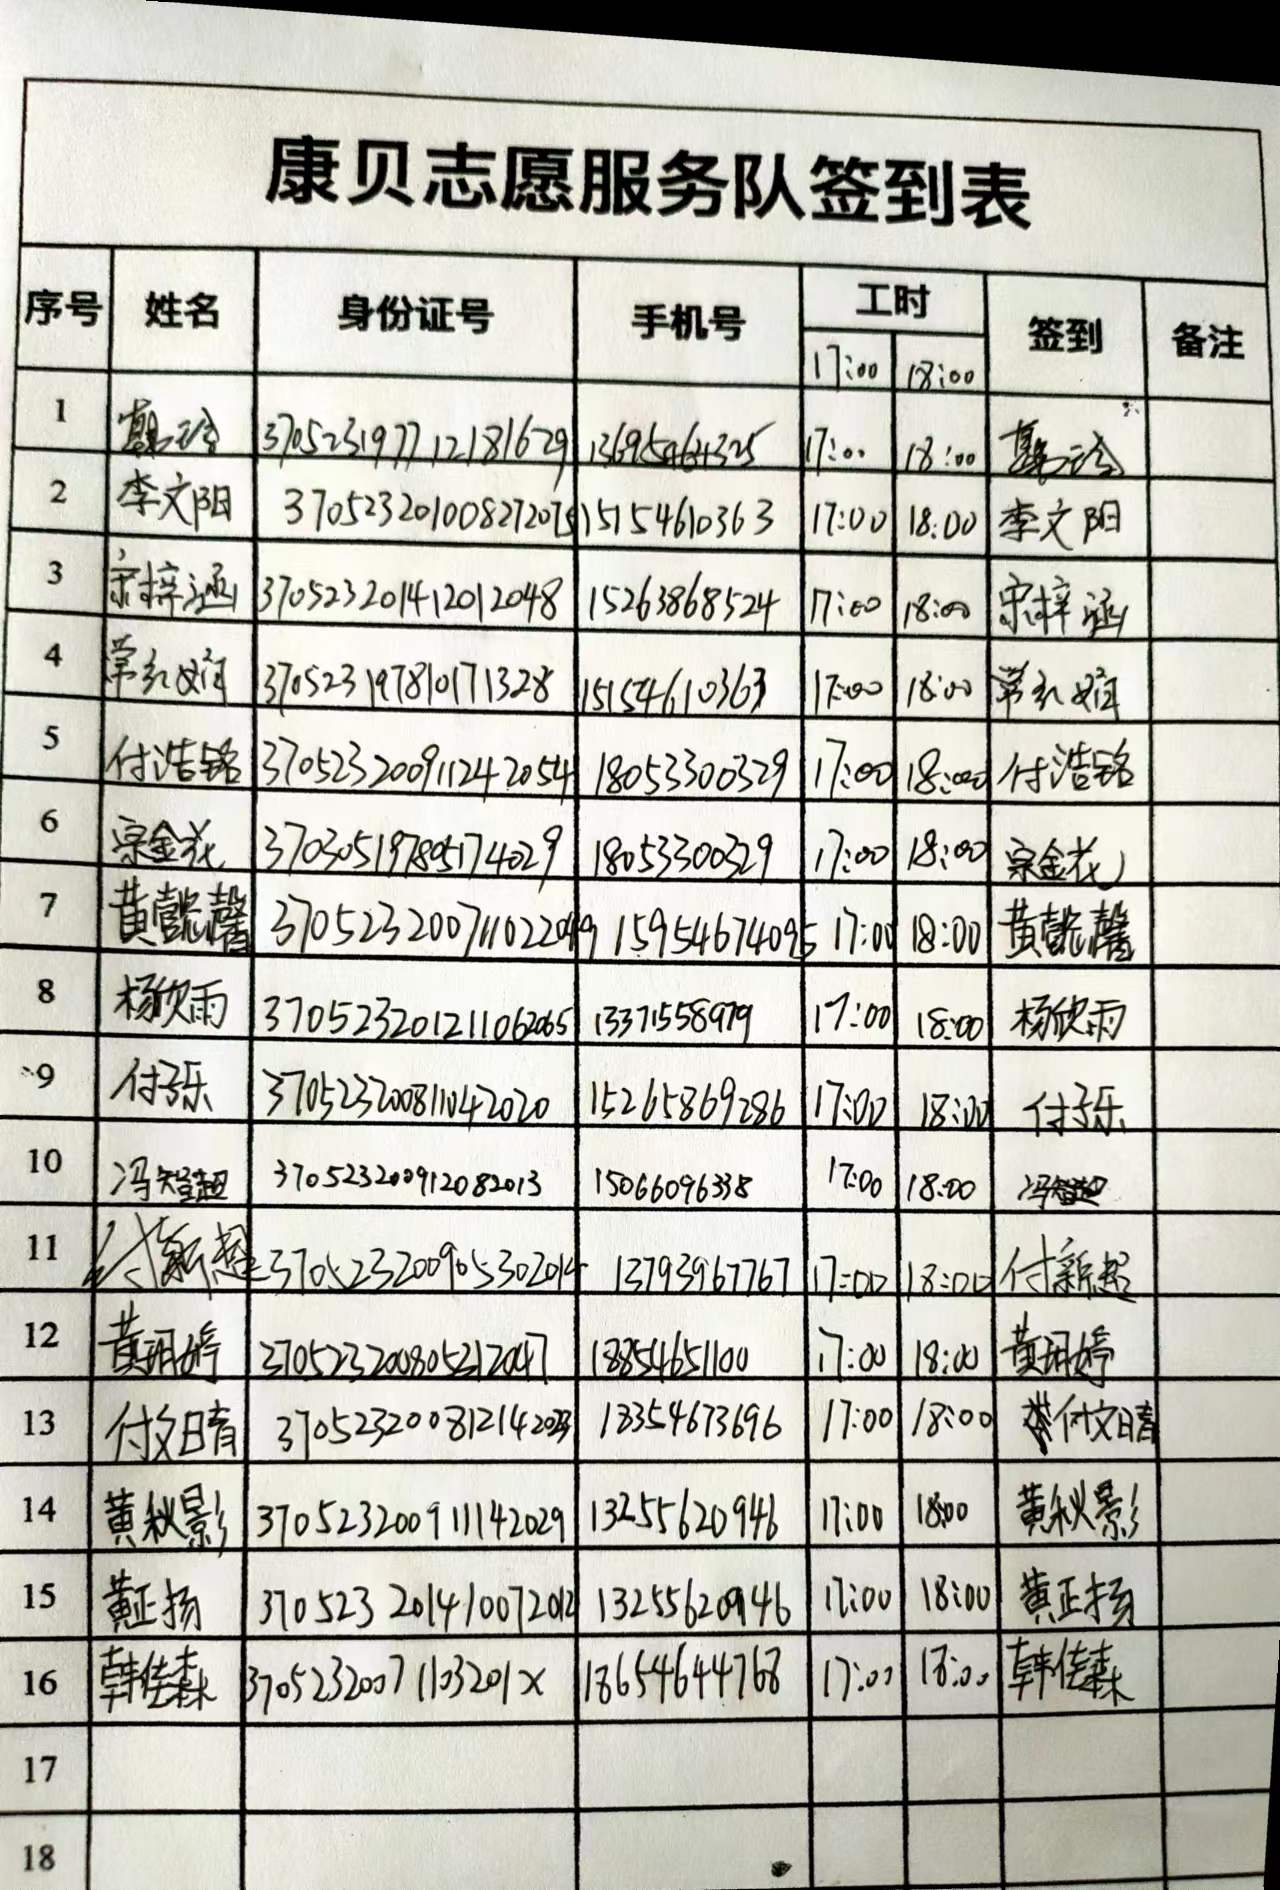 康贝志愿服务队签到表
序号 姓名 身份证号 手机号 工时 签到 备注
17:00 18:00
1 370523197712181629 13695464325 17:00 18:00
2 李文阳 370523201008272075 15154610363 17:00 18:00 李文阳
3 宋梓涵 370523201412012048 15263868524 17:00 18:00 宋梓涵
4 常红娟 370523197810171328 15154610363 17:00 18:00 常红娟
5 付浩铭 370523200911242054 18053300329 17:00 18:00 付浩铭
6 宗金花 370305197805174029 18053300329 17:00 18:00 宗金花
7 黄懿馨 370523200711022049 15954674095 17:00 18:00 黄懿馨
8 杨欣雨 370523201211062065 13371558979 17:00 18:00 杨欣雨
9 付子乐 370523200811042020 15265869286 17:00 18:00 付子乐
10 冯智超 370523200912082013 15066096338 17:00 18:00 冯智超
11 付新超 370523200905302014 13793967767 17:00 18:00 付新超
12 黄玥婷 370523200805212047 18854651100 17:00 18:00 黄玥婷
13 付文晴 370523200812142023 18354673696 17:00 18:00 付文晴
14 黄秋影 370523200911142029 13255620946 17:00 18:00 黄秋影
15 黄正扬 370523201410072012 13255620946 17:00 18:00 黄正扬
16 韩佳森 37052320071103201X 18654644768 17:00 18:00 韩佳森
17
18